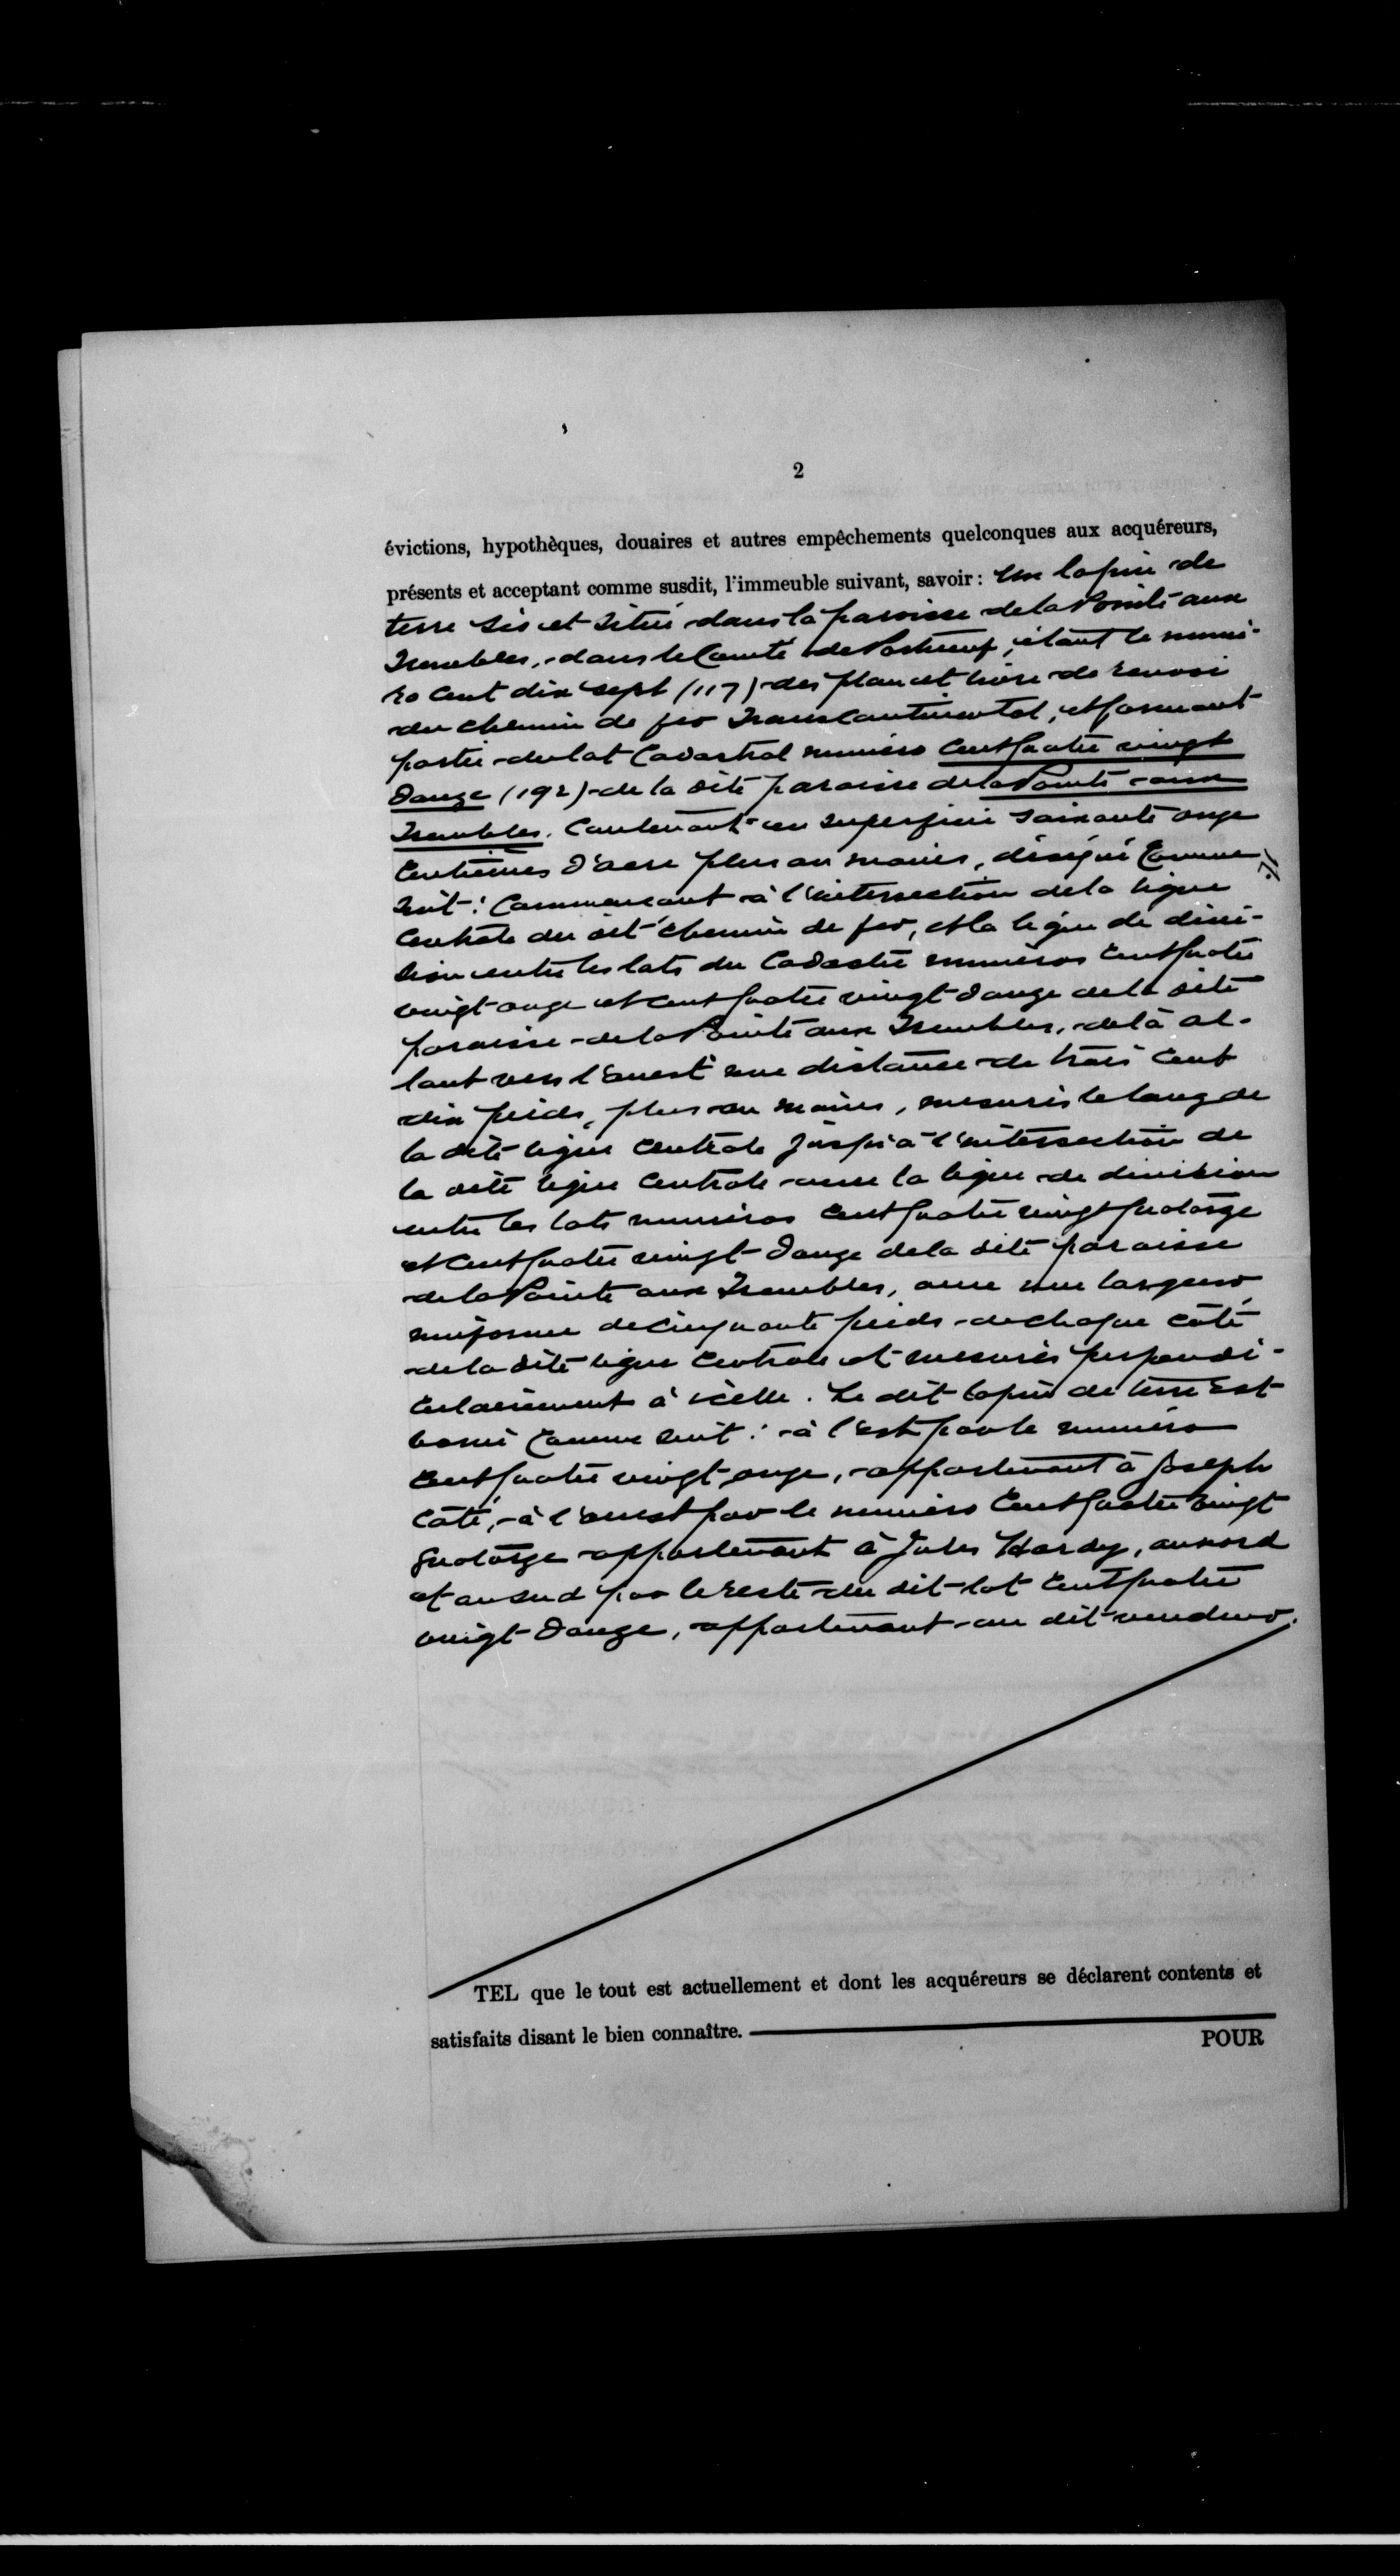 2
évictions, hypothèques, douaires et autres empêchements quelconques aux acquéreurs,
présents et acceptant comme susdit, l'immeuble suivant, savoir : Un lopin de
terre sis et situé dans la paroisse de la Pointe aux
Trembles, dans le Comté de Portneuf, étant le numé-
ro cent dix sept (117) des plan et livre de renvoi
du chemin de fer Transcontinental, et formant
partie du lot Cadastral numéro cent quatre vingt
douze (192) de la dite paroisse de la Pointe aux
Trembles. Contenant en superficie soixante onze
centièmes d'acre plus ou moins, désigné comme
suit : Commencant à l'intersection de la ligne
centrale du dit chemin de fer, et la ligne de divi-
sion entre les lots du Cadastre numéros cent quatre
vingt onze et cent quatre vingt douze de la dite
paroisse de la Pointe aux Trembles, de là al-
lant vers l'ouest une distance de trois cent
dix pieds, plus ou moins, mesurés le long de
la dite ligne centrale jusqu'à l'intersection de
la dite ligne centrale avec la ligne de division
entre les lots numéros cent quatre vingt quatorze
et cent quatre vingt douze de la dite paroisse
de la Pointe aux Trembles, avec une largeur
uniforme de cinquante pieds de chaque côté
de la dite ligne centrale et mesurés perpendi-
culairement à icelle. Le dit lopin de terre est
borné comme suit : à l'est par le numéro
cent quatre vingt onze, appartenant à Joseph
Côté, à l'ouest par le numéro cent quatre vingt
quatorze appartenant à Jules Hardy, au nord
et au sud par le reste du dit lot cent quatre
vingt douze, appartenant au dit vendeur.
TEL que le tout est actuellement et dont les acquéreurs se déclarent contents et
satisfaits disant le bien connaître.
POUR